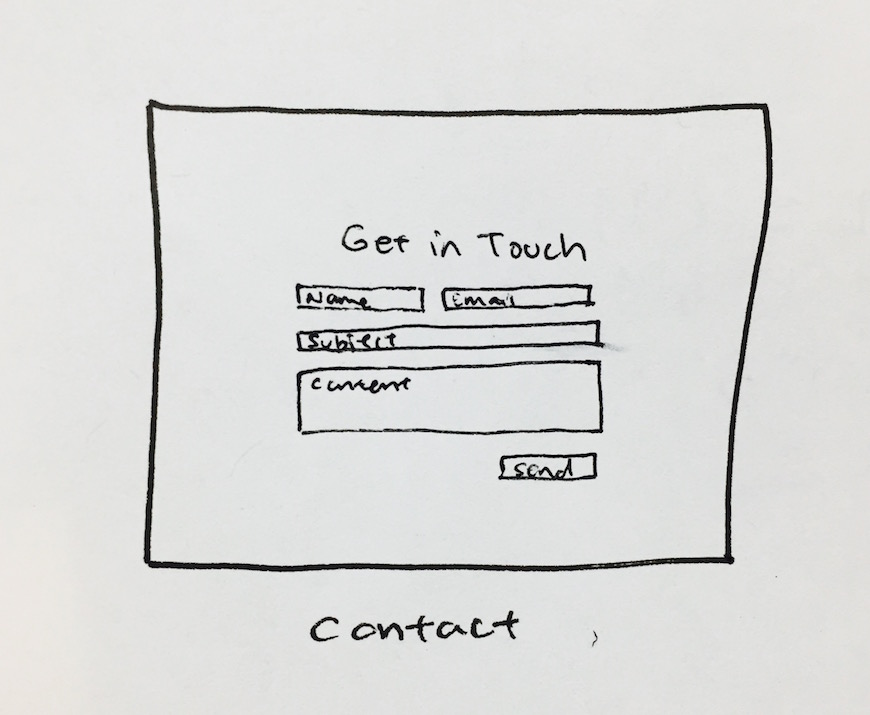 Get in Touch
Name Email
Subject
Content
Send
Contact